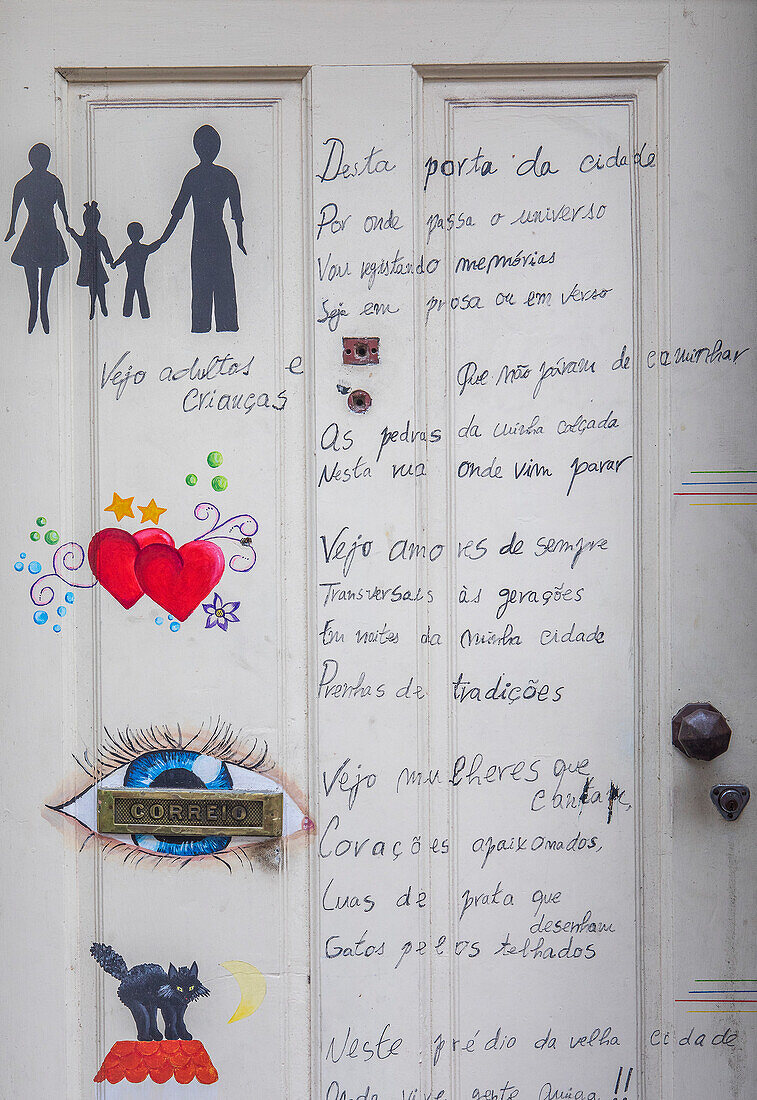 Desta porta da cidade
Por onde passa o universo
Vou registando memórias
Seja em prosa ou em verso
Vejo adultos e
crianças
Que não páram de caminhar
As pedras da minha calçada
Nesta rua onde vim parar
Vejo amores de sempre
Transversais às gerações
Em noites da minha cidade
Prenhas de tradições
Vejo mulheres que
cantam,
Corações apaixonados,
Luas de prata que
desenham
Gatos pelos telhados
CORREIO
Neste prédio da velha cidade
Onde vive gente amiga!!